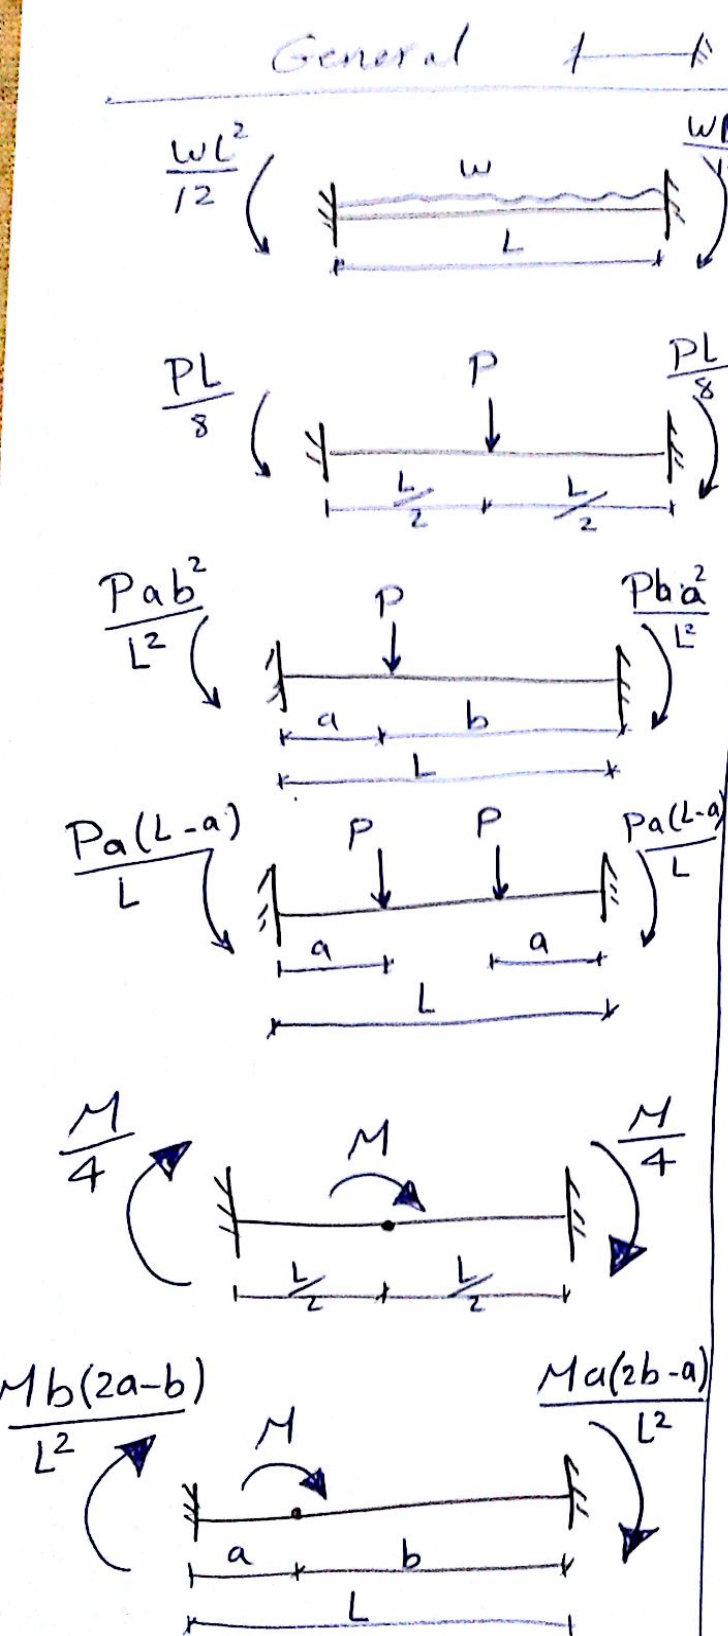 General
WL²/12 W WL
L
PL/8 P PL/8
L/2 L/2
Pab²/L² P Pba²/L²
a b
L
Pa(L-a)/L P P Pa(L-a)/L
a a
L
M/4 M M/4
L/2 L/2
Mb(2a-b)/L² M Ma(2b-a)/L²
a b
L